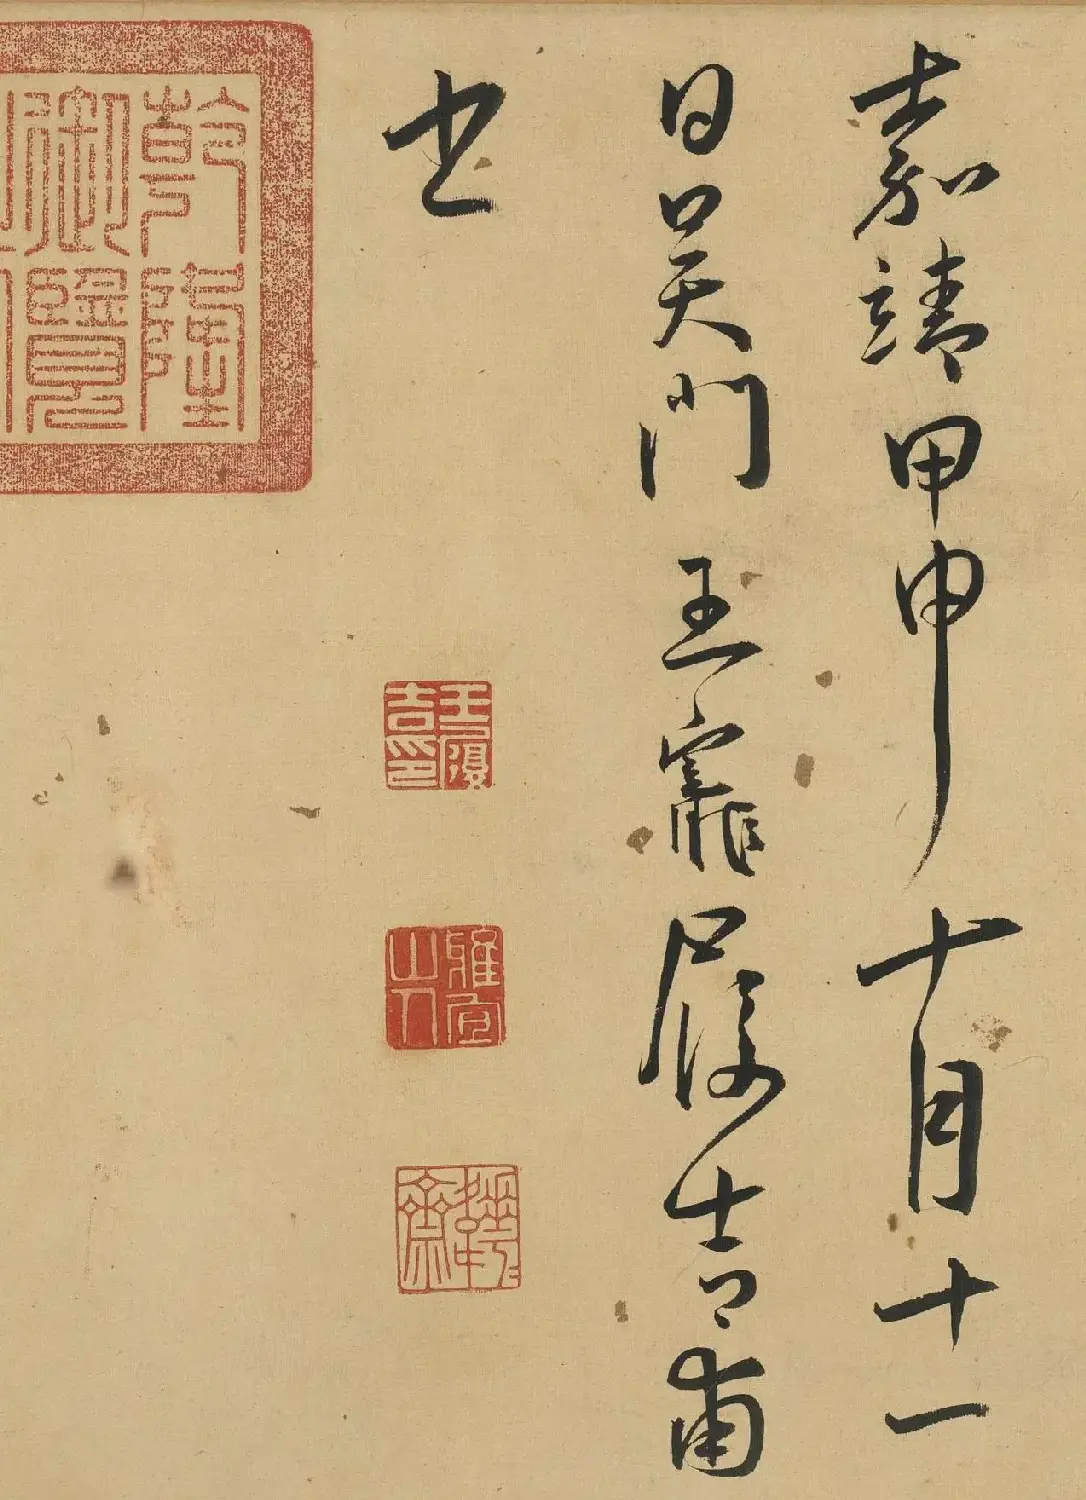 嘉靖甲申十月十一
日吴門王寵履吉甫
书
王履吉印
雅宜山人
乾隆
御覽